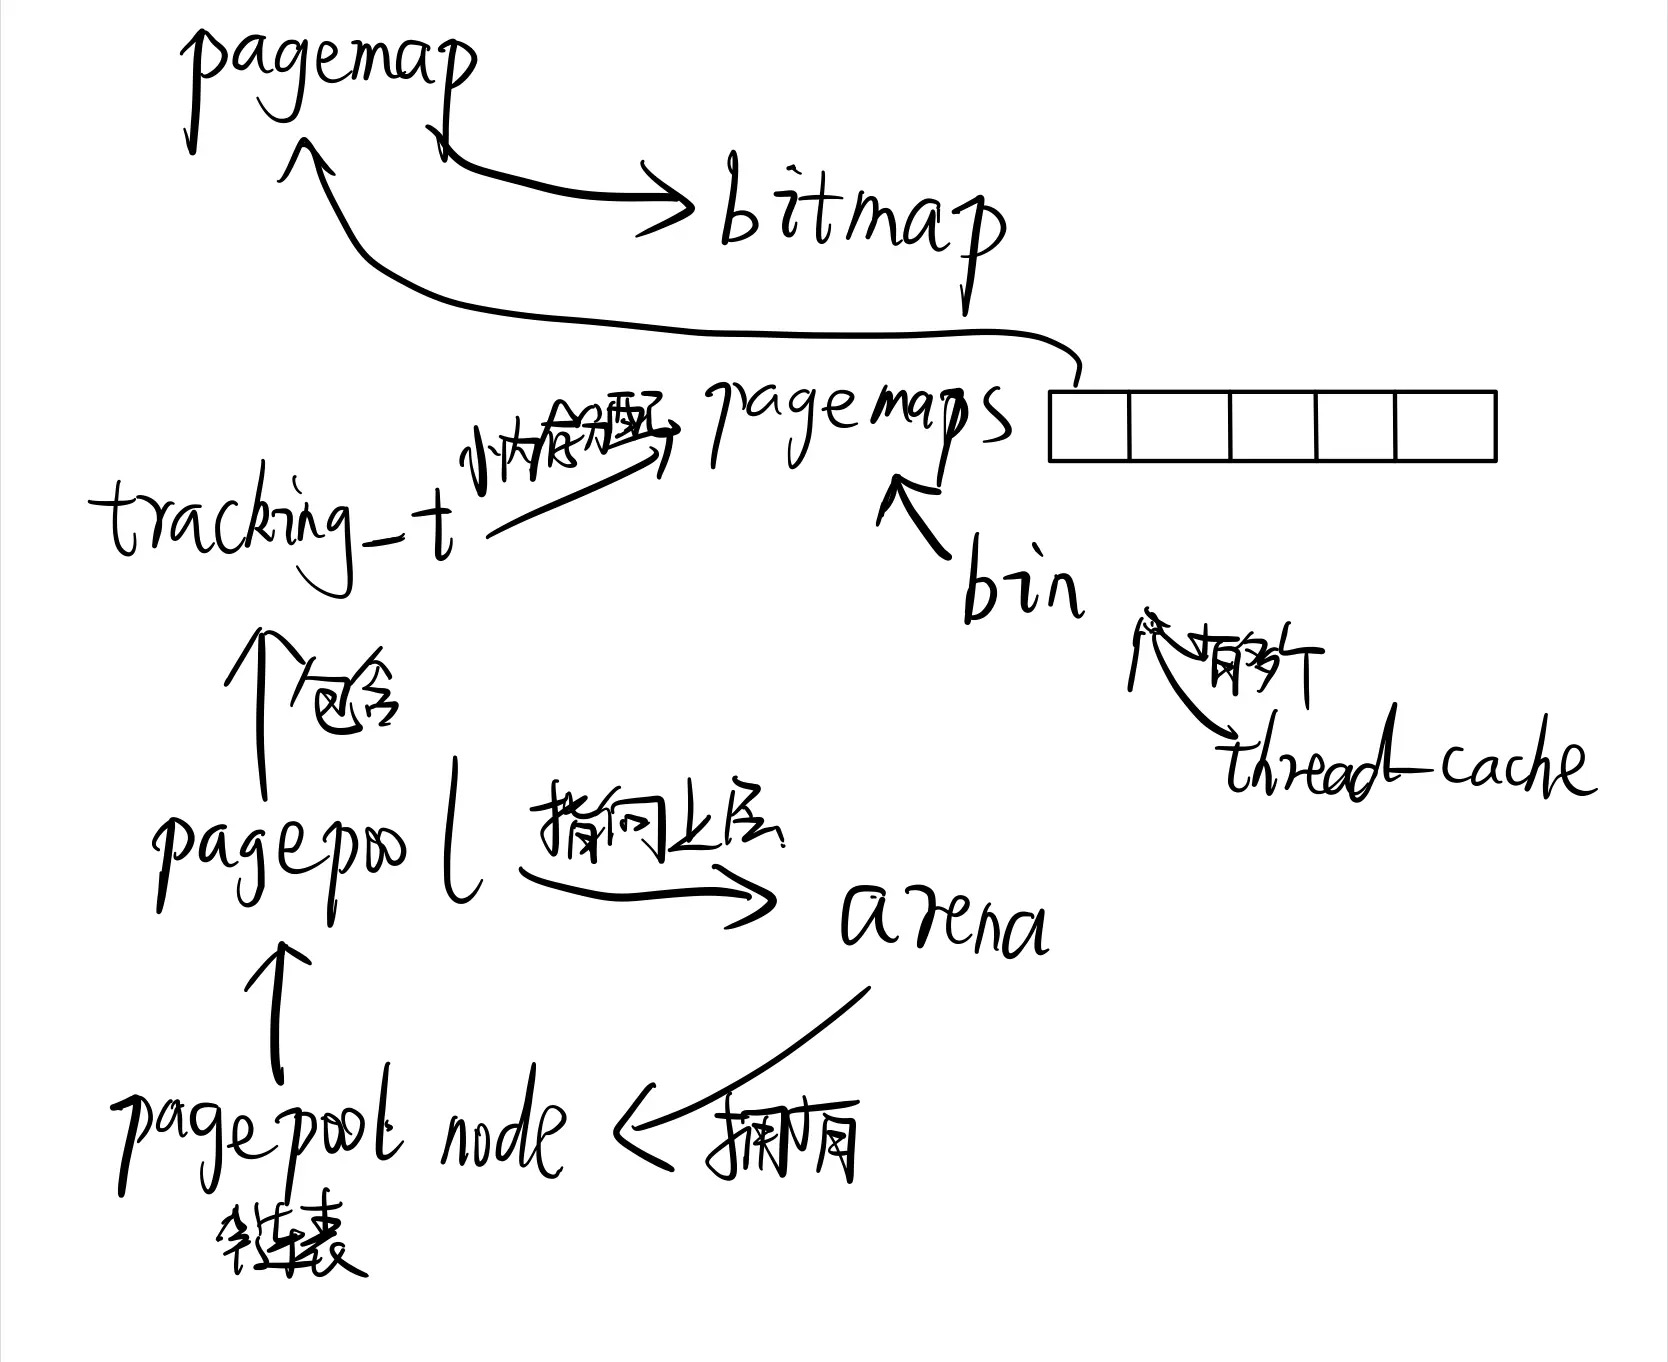 pagemap
bitmap
小内存分配
pagemaps
tracking_t
bin
有多个
包含
thread_cache
pagepool
指向上层
arena
pagepool node
拥有
链表